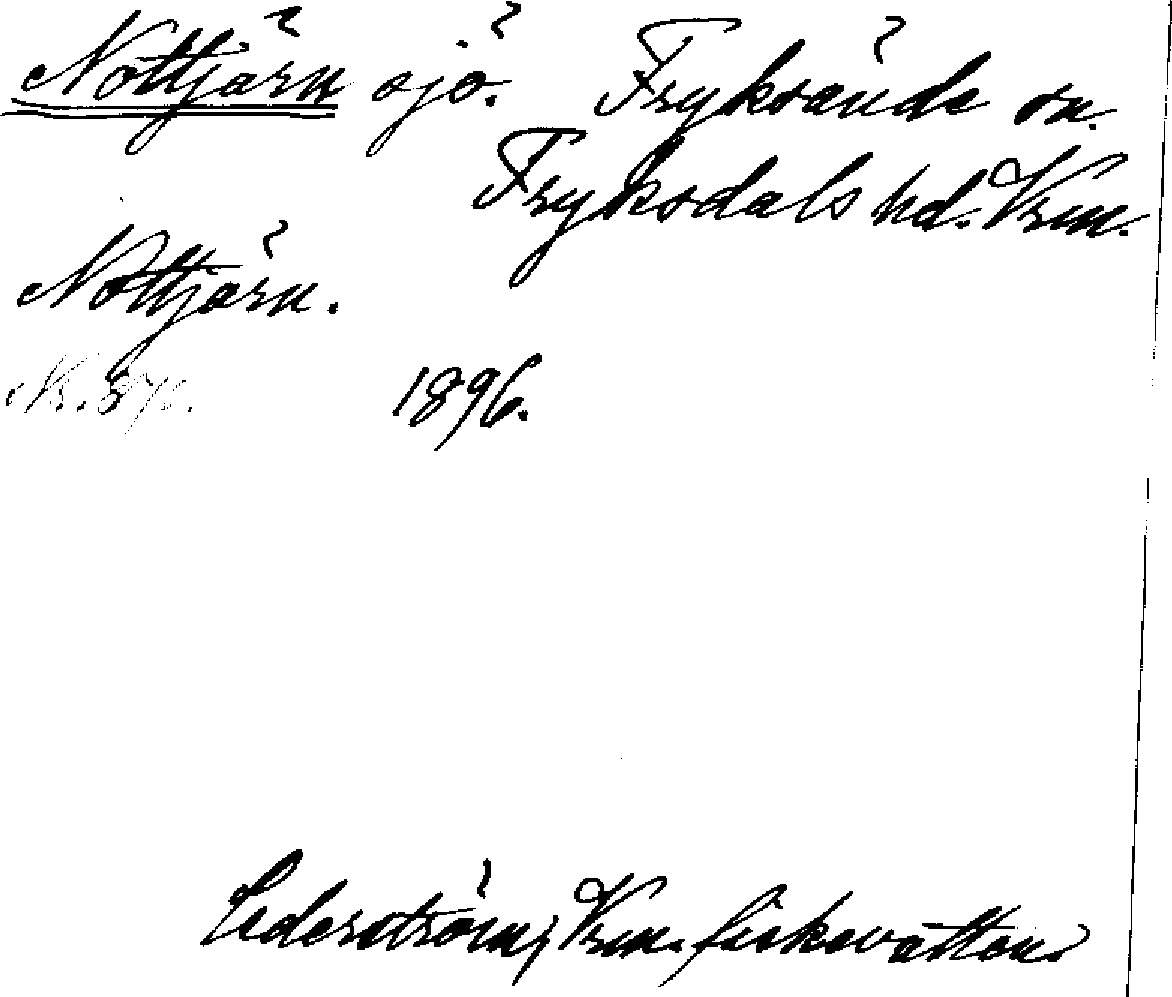 Nottjärn sjö. Fryksände sn.
Fryksdals hd. Vrm.
Nottjärn.
Nr. 1896.
Cederström, Vrm. fiskevatten